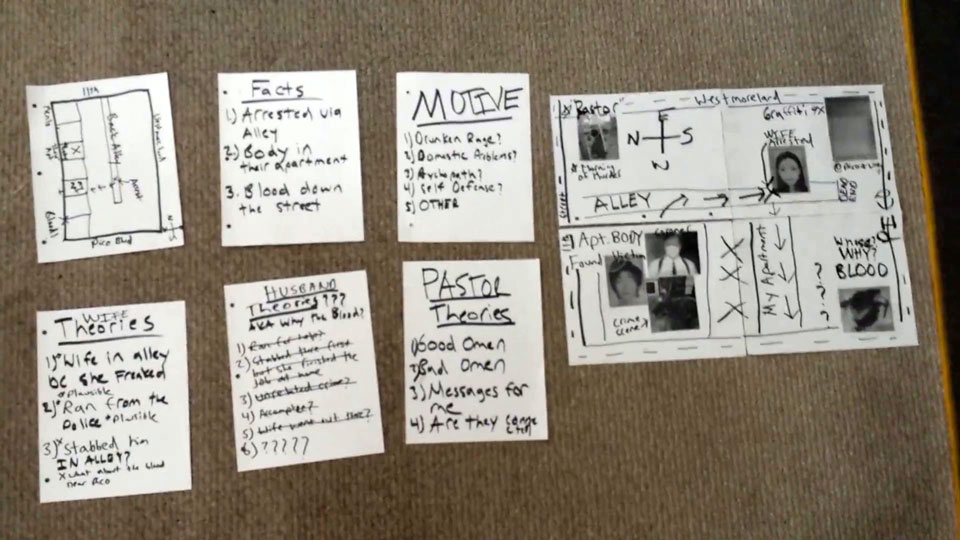 11th
Back Alley
X
Pico Blvd
N
S
Facts
1) Arrested via
Alley
2) Body in
their apartment
3. Blood down
the street
MOTIVE
1) Drunken Rage?
2) Domestic Problems?
3) Psychopath?
4) Self Defense?
5) OTHER
WIFE
Theories
1) Wife in alley
bc she Freaked
Plausible
2) Ran from the
Police Plausible
3) Stabbed him
IN ALLEY?
X what about the blood
near Pico
HUSBAND
Theories???
AKA Why the Blood?
1) Ran for help?
2) Stabbed there first
but she finished the
job at home
3) Unrelated crime?
4) Accomplice?
5) Wife went out there?
6) ?????
PASTOR
Theories
1) Good Omen
2) Bad Omen
3) Messages for
me
4) Are they
Westmoreland
"Pastor"
Morning
of Murder
N
S
Graffiti
WIFE
Arrested
DEAD
END
Street
ALLEY
11th
Apt. BODY
Found
Victim
Coroner
Crime
scene
X X X
My Apartment
Whose?
WHY?
BLOOD